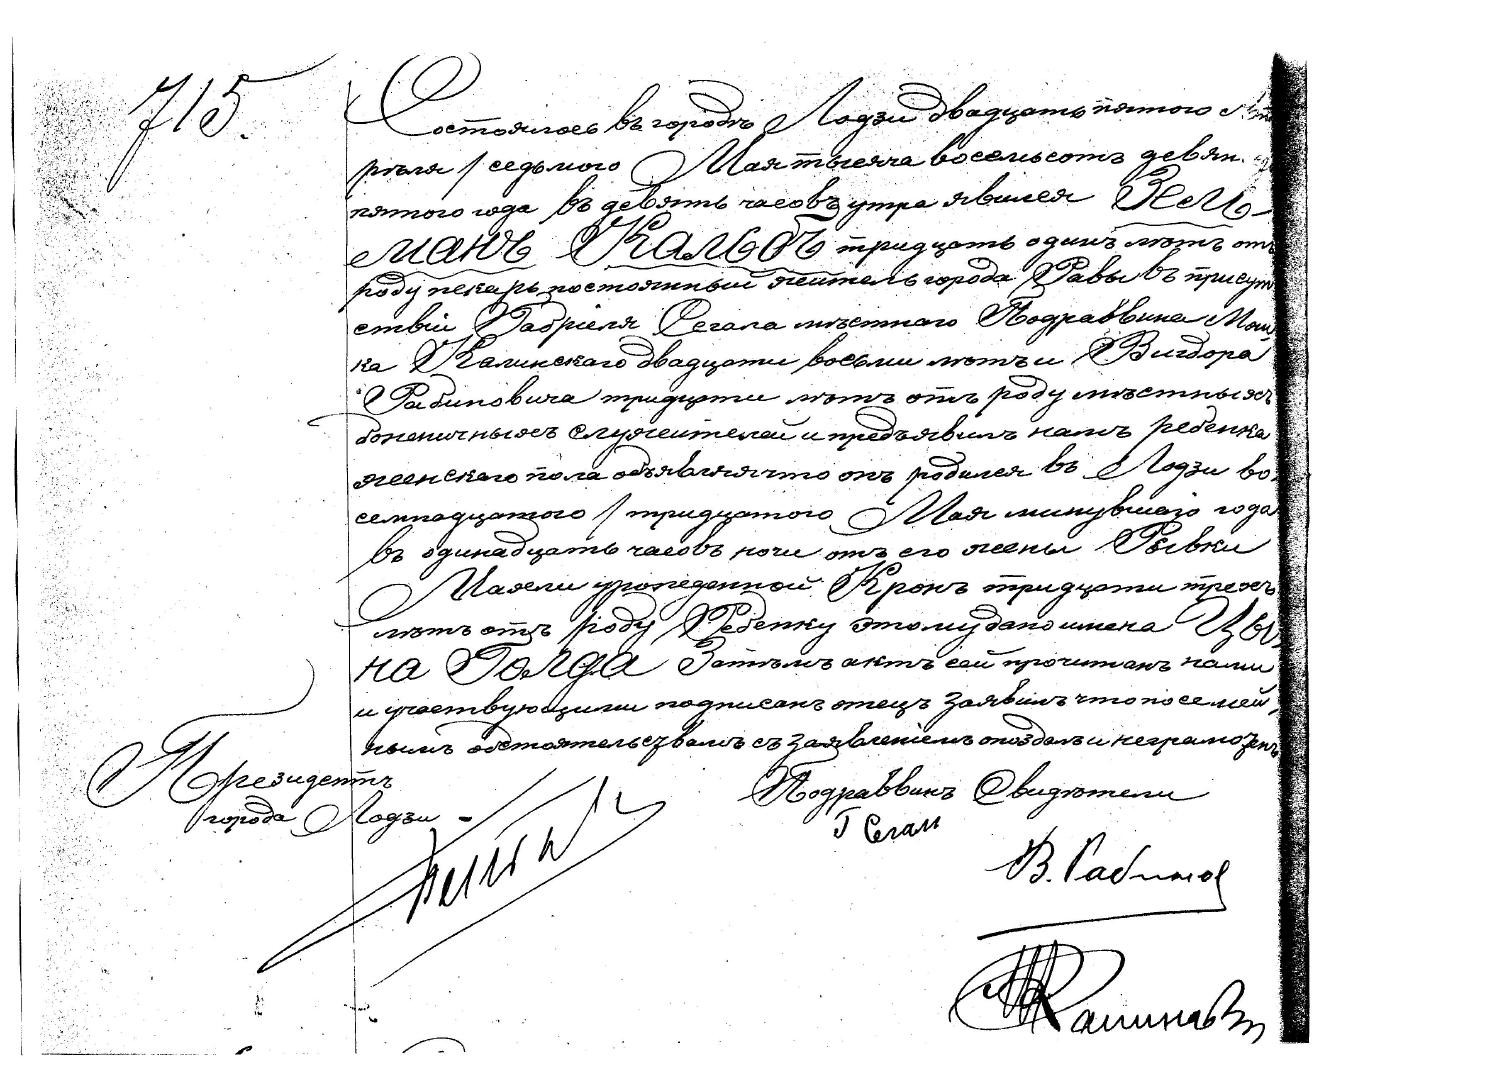 715.
Состоялось въ городѣ Лодзи двадцать пятого Ап
рѣля / седьмого Мая тысяча восемьсотъ девян.
пятого года въ девять часовъ утра явился Гем-
манъ Кальбъ тридцать одинъ лѣтъ отъ
роду пекарь постоянный житель города Равы въ присут
ствіи Габріеля Сегала мѣстнаго Подраввина Мош
ка Калинскаго двадцати восьми лѣтъ и Вигдора
Рабиновича тридцати лѣтъ отъ роду мѣстныхъ
божничныхъ служителей и предъявилъ намъ ребенка
женскаго пола объявляя что онъ родился въ Лодзи во
семнадцатого / тридцатого Мая минувшаго года
въ одинадцать часовъ ночи отъ его жены Рывки
Маели урожденной Кронъ тридцати трехъ
лѣтъ отъ роду Ребенку этому дано имена Цы
на Голда Затѣмъ актъ сей прочитанъ нами
и участвующими подписанъ отецъ заявилъ что по семей
нымъ обстоятельствамъ съ заявленіемъ опоздалъ и неграмотенъ
Президентъ
города Лодзи
Подраввинъ Свидѣтели
Г Сегал
В. Рабинов